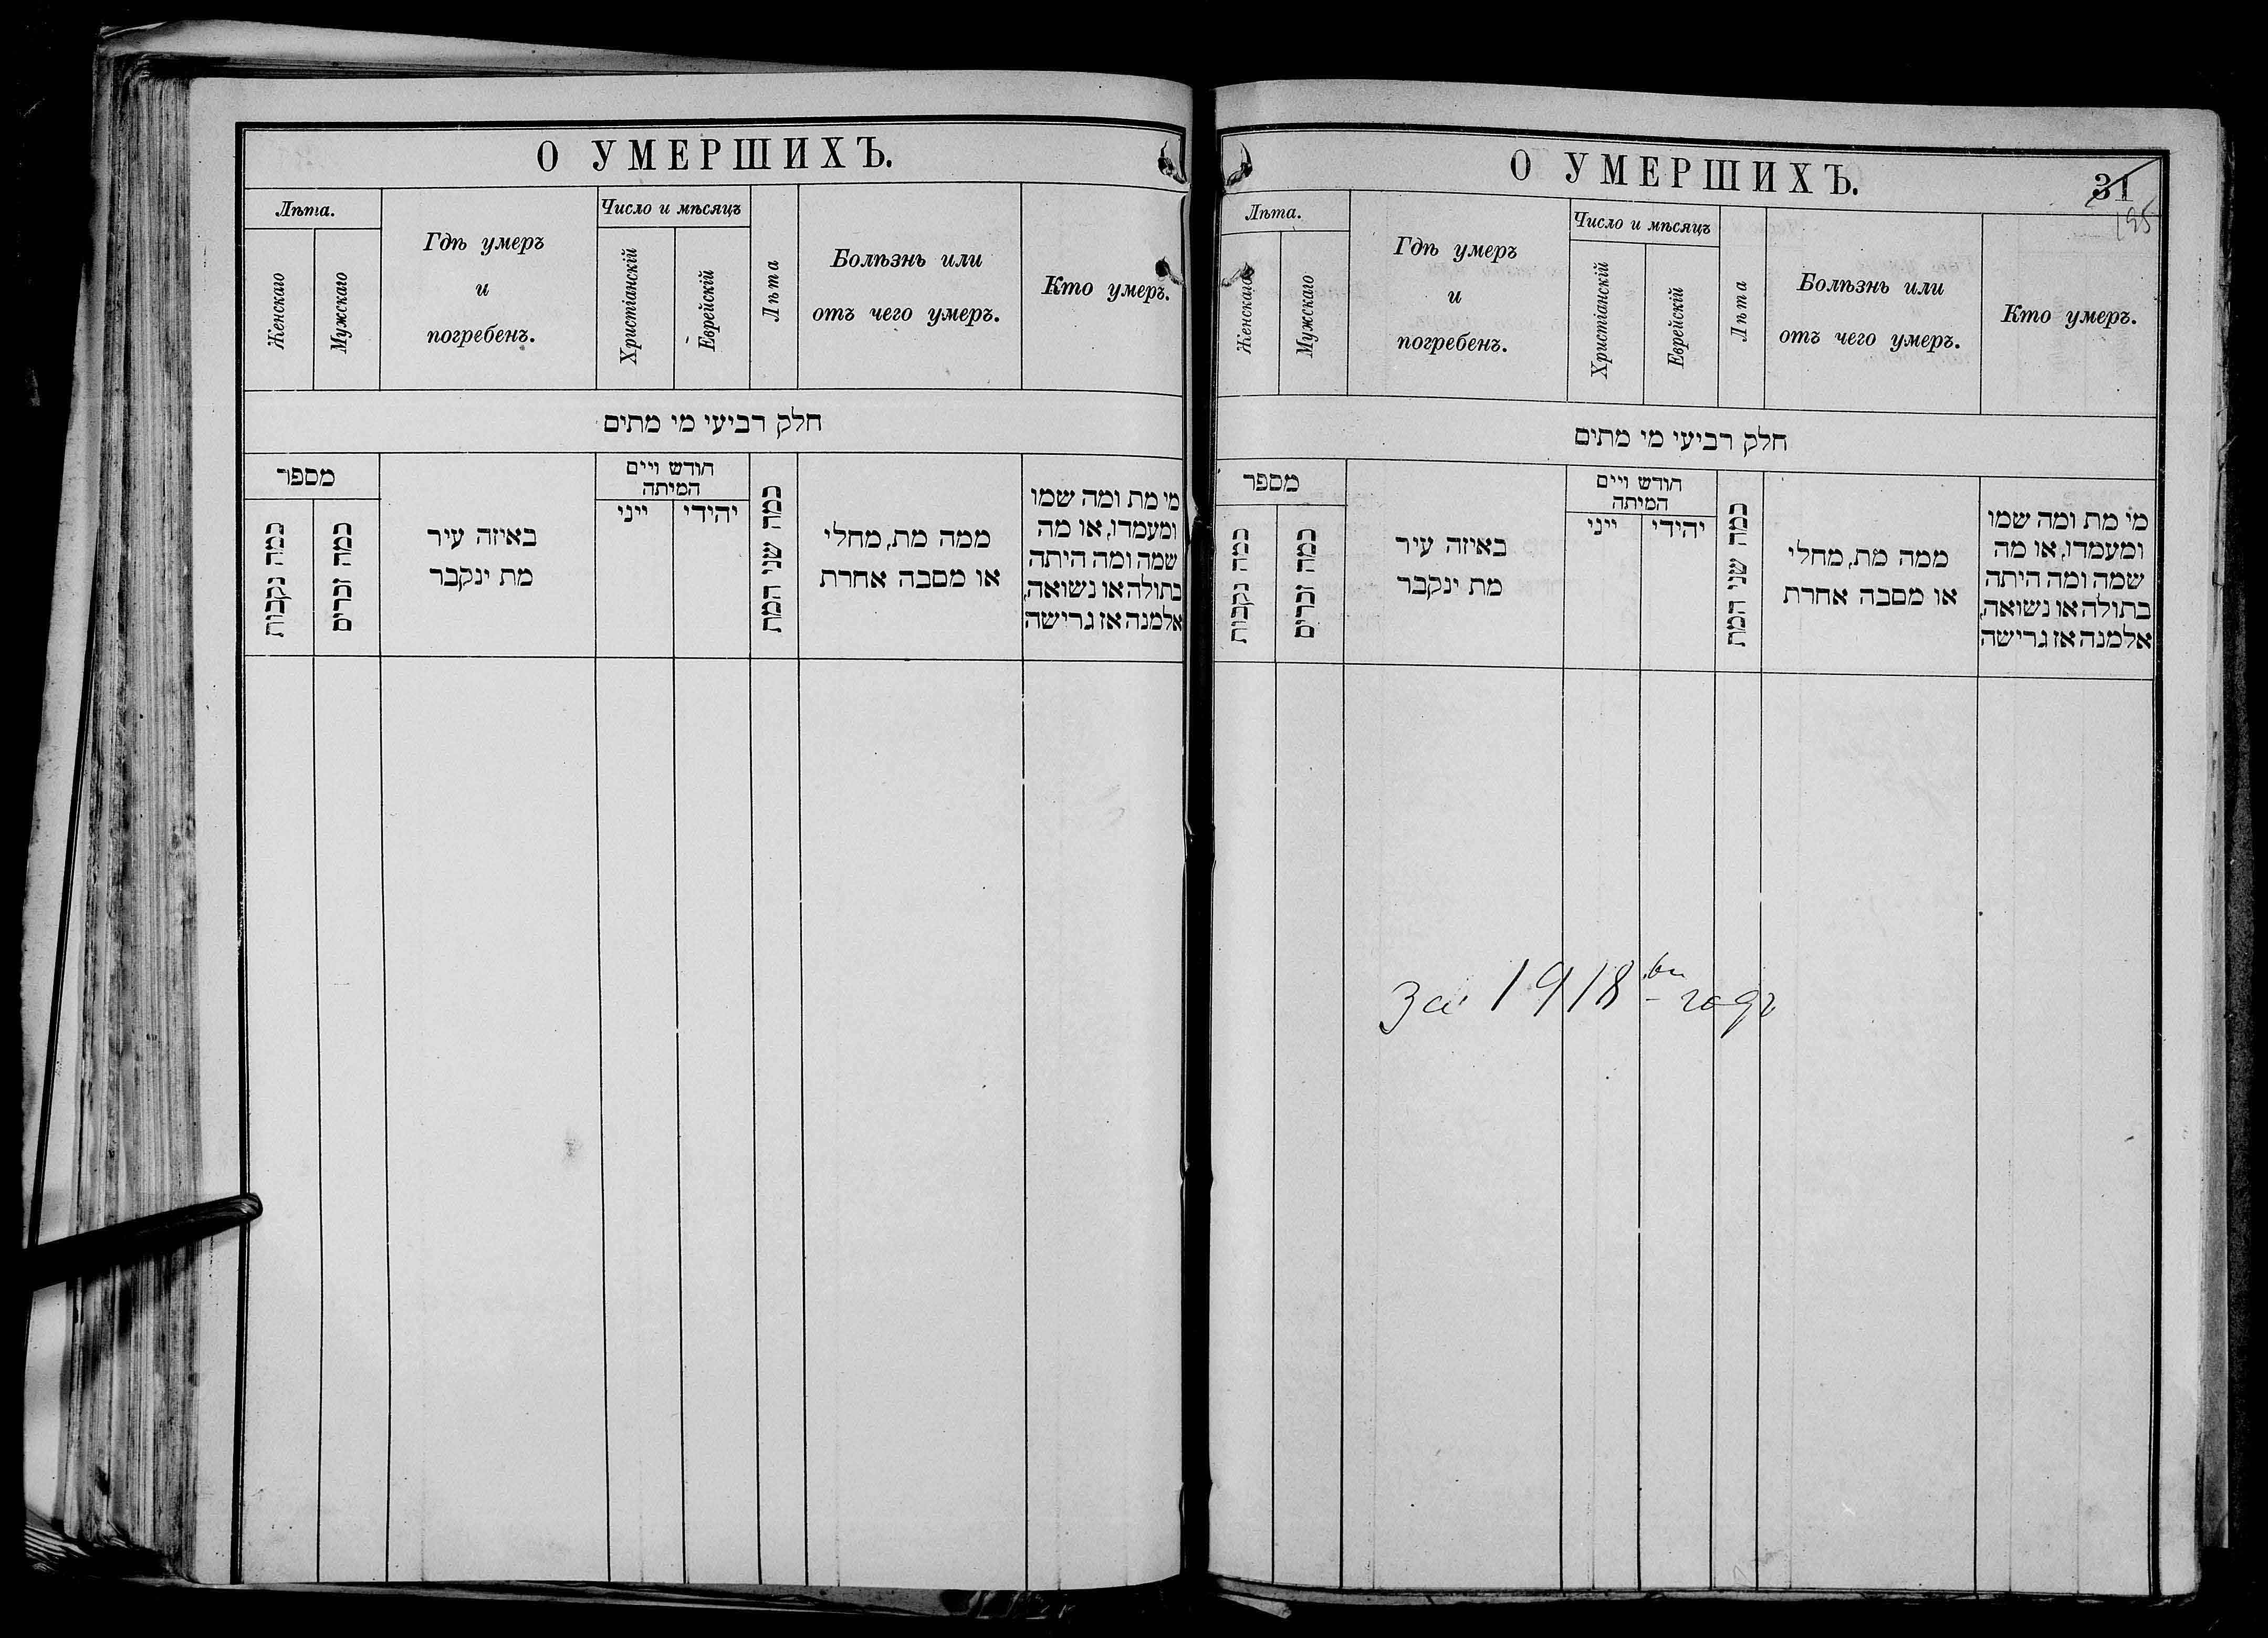 О УМЕРШИХЪ.
Лѣта.
Женскаго
Мужскаго
Гдѣ умеръ
и
погребенъ.
Число и мѣсяцъ
Христіанскій
Еврейскій
Лѣта
Болѣзнь или
отъ чего умеръ.
Кто умеръ.
חלק רביעי מי מתים
מספר
כמה נקבות
כמה זכרים
באיזה עיר
מת ינקבר
חודש ויים
המיתה
ייני
יהודי
כמה שני המת
ממה מת, מחלי
או מסבה אחרת
מי מת ומה שמו
ומעמדו, או מה
שמה ומה היתה
בתולה או נשואה,
אלמנה אז גרישה
О УМЕРШИХЪ.
31
195
Лѣта.
Женскаго
Мужскаго
Гдѣ умеръ
и
погребенъ.
Число и мѣсяцъ
Христіанскій
Еврейскій
Лѣта
Болѣзнь или
отъ чего умеръ.
Кто умеръ.
חלק רביעי מי מתים
מספר
כמה נקבות
כמה זכרים
באיזה עיר
מת ינקבר
חודש ויים
המיתה
ייני
יהידי
כמה שני המת
ממה מת, מחלי
או מסבה אחרת
מי מת ומה שמו
ומעמדו, או מה
שמה ומה היתה
בתולה או נשואה,
אלמנה אז גרישה
За 1918 годъ